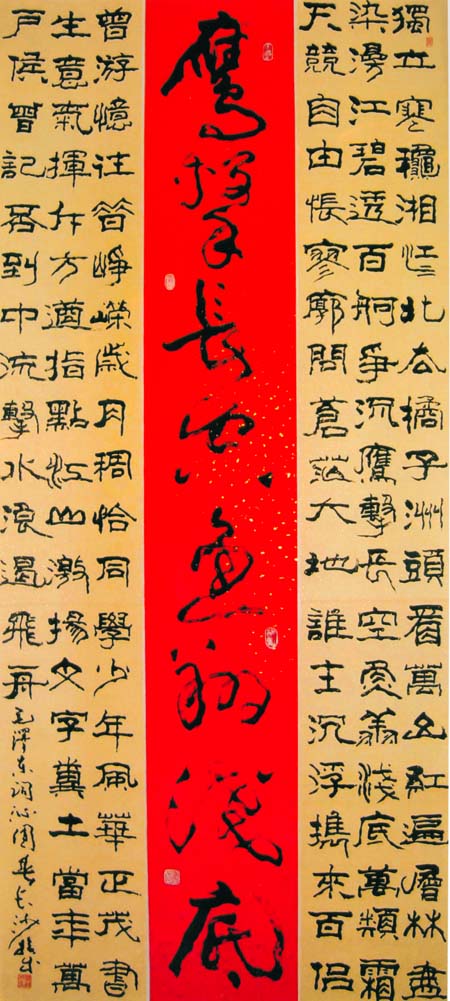 獨立寒龝湘江北去橘子洲頭看萬山紅遍層林盡
染漫江碧透百舸爭流鷹擊長空魚翔淺底萬類霜
天競自由悵寥廓問蒼茫大地誰主沉浮攜來百侶
鷹擊長空魚翔淺底
曾游憶往昔崢嶸歲月稠恰同學少年風華正茂書
生意氣揮斥方遒指點江山激揚文字糞土當年萬
戶侯曾記否到中流擊水浪遏飛舟毛澤東詞沁園春長沙